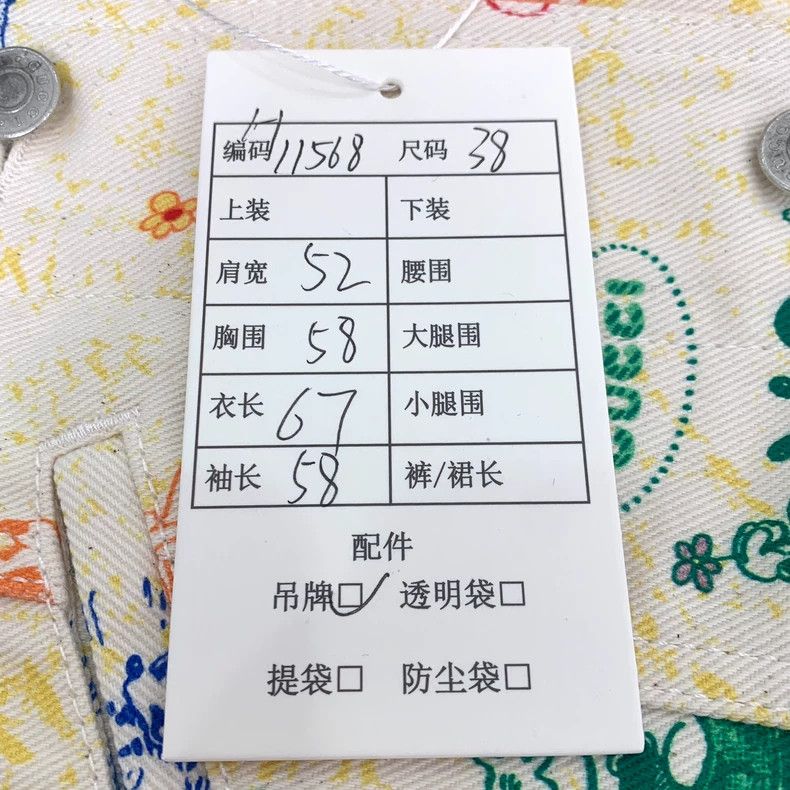 编码 H11568 尺码 38
上装 下装
肩宽 52 腰围
胸围 58 大腿围
衣长 67 小腿围
袖长 58 裤/裙长
配件
吊牌☑ 透明袋□
提袋□ 防尘袋□
GUCCI